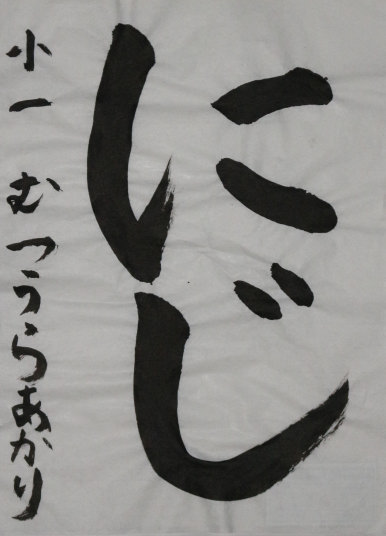 にじ
小一 むつうらあかり